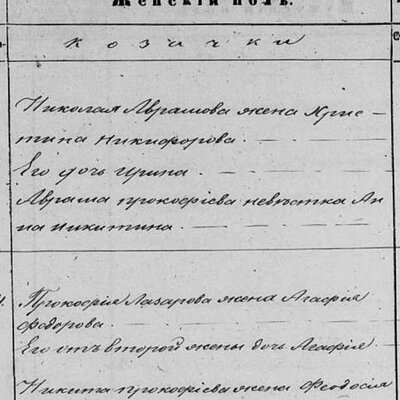 Женскій полъ.
козачки
Николая Аврамова жена Хрис-
тина Никифорова.
Его дочь Ирина.
Аврама Прокофіева невѣстка Ан
на Никитина
Прокофія Лазарова жена Агафія
Федорова.
Его отъ второй жены дочь Агафія.
Никита Прокофіева жена Феодосія